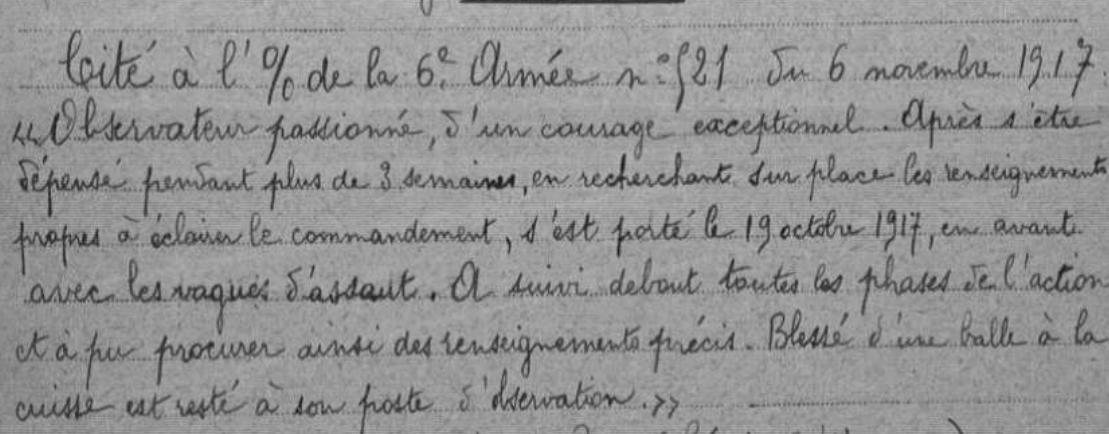 Cité à l'% de la 6e Armée n° 521 du 6 novembre 1917.
"Observateur passionné, d'un courage exceptionnel. Après s'être
dépensé pendant plus de 3 semaines, en recherchant sur place les renseignements
propres à éclairer le commandement, s'est porté le 19 octobre 1917, en avant
avec les vagues d'assaut. A suivi debout toutes les phases de l'action
et à pu procurer ainsi des renseignements précis. Blessé d'une balle à la
cuisse est resté à son poste d'observation.>>